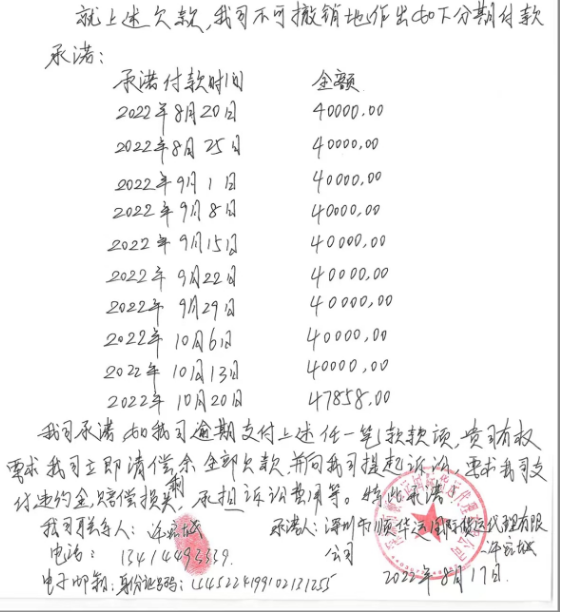 就上述欠款,我司不可撤销地作出如下分期付款
承诺:
承诺付款时间 金额
2022年8月20日 40000.00
2022年8月25日 40000.00
2022年9月1日 40000.00
2022年9月8日 40000.00
2022年9月15日 40000.00
2022年9月22日 40000.00
2022年9月29日 40000.00
2022年10月6日 40000.00
2022年10月13日 40000.00
2022年10月20日 47858.00
我司承诺如我司逾期支付上述任一笔款款项,贵司有权
要求我司立即清偿剩余全部欠款,并向我司提起诉讼,要求我司支
付违约金,赔偿损失,承担诉讼费用等。特此承诺!
我司联系人: 承诺人:深圳市顺华运国际货运代理有限
电话: 13414493339. 公司
电子邮箱:身份证号码: 2022年8月17日.